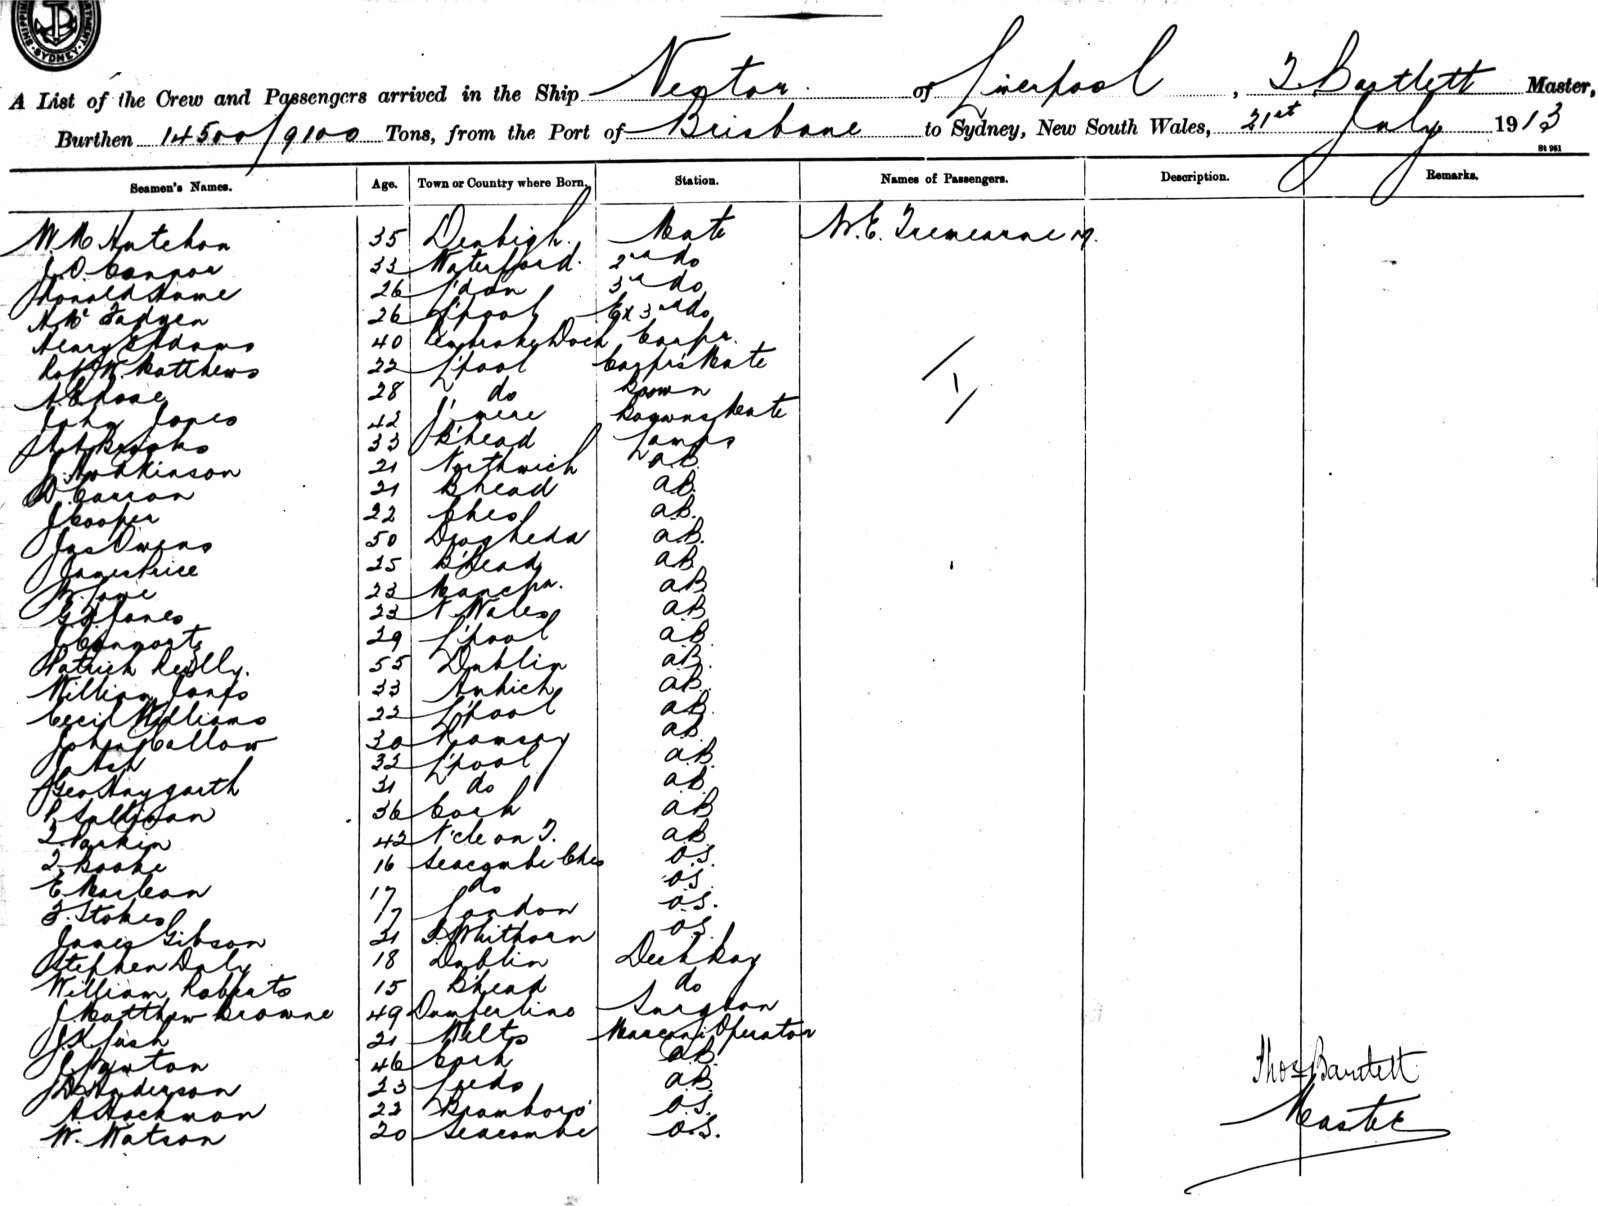 SYDNEY
A List of the Crew and Passengers arrived in the Ship Nestor of Liverpool, T Bartlett Master,
Burthen 14500/9100 Tons, from the Port of Brisbane to Sydney, New South Wales, 21st July 1913
St 961
Seamen's Names. Age. Town or Country where Born. Station. Names of Passengers. Description. Remarks.
W. McHutchon 35 Denbigh. Mate W.E. Tremearne
J. O. Connor 33 Waterford. 2nd do
Ronald Hume 26 L'don 3rd do
26 L'pool Ex 3rd do
Henry Adams 40 Pembroke Dock Carpr.
Robt W. Matthews 22 L'pool Carpr's Mate
28 do Bosun
John Jones 42 Bosuns Mate
Brooks 33 B'head Lamps
J. Hodkinson 21 Northwich A.B.
Carron 21 B'head A.B.
J Cooper 22 Ches A.B.
Jas Owens 50 Drogheda A.B.
James Price 25 B'head A.B.
23 Manchr. A.B.
Jones 23 N Wales A.B.
29 L'pool A.B.
Patrick Reilly. 55 Dublin A.B.
William Jones 33 A.B.
Cecil Williams 22 L'pool A.B.
John Callow 30 Ramsey A.B.
J Ash 32 L'pool A.B.
Geo Haygarth 31 do A.B.
P. Sullivan 36 Cork A.B.
T. Parkin 42 N'cle on T. A.B.
16 Seacombe Ches O.S.
17 do O.S.
F. Stokes 17 London O.S.
James Gibson 21 Whithorn O.S.
Stephen Daly 18 Dublin Deck Boy
William Roberts 15 B'head do
J Matthew Browne 49 Surgeon
21 Wilts Marconi Operator
46 Cork A.B.
Anderson 23 Leeds A.B.
22 Bromboro' O.S.
W. Watson 20 Seacombe O.S.
Thos Bartlett
Master